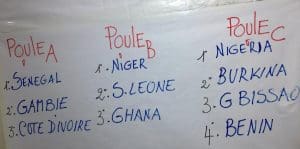 POULE A
1. SENEGAL
2. GAMBIE
3. COTE D'IVOIRE
POULE B
1. NIGER
2. S. LEONE
3. GHANA
POULE C
1 NIGERIA
2. BURKINA
3. G BISSAO
4. BENIN